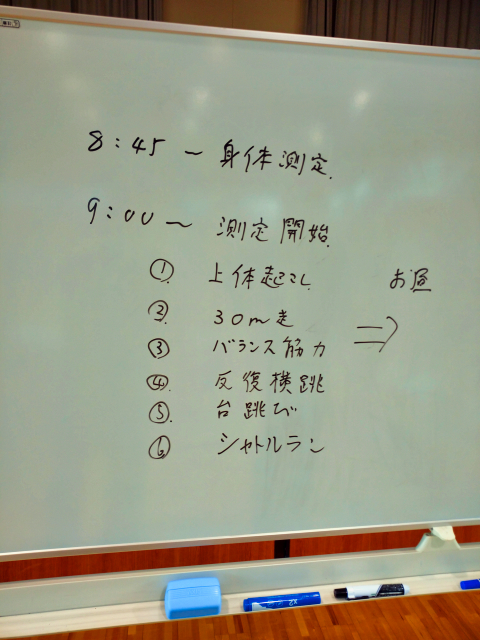 8:45 〜 身体測定.
9:00 〜 測定開始.
① 上体起こし
② 30m走
③ バランス筋力
④ 反復横跳
⑤ 台跳び
⑥ シャトルラン
⇒ お昼